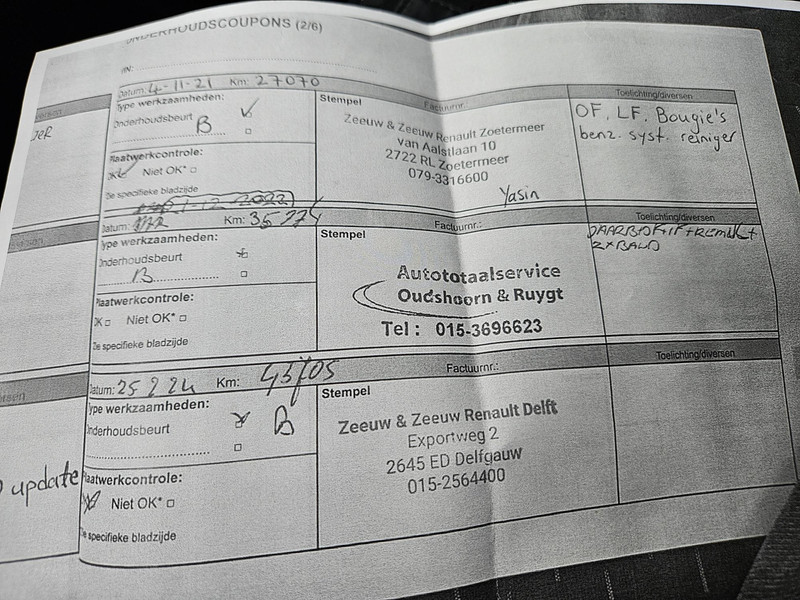 ONDERHOUDSCOUPONS (2/6)
IN:
Datum: 4-11-21 Km: 27070
Type werkzaamheden:
Onderhoudsbeurt B
Plaatwerkcontrole:
OK Niet OK*
Zie specifieke bladzijde
Stempel Factuurnr.:
Zeeuw & Zeeuw Renault Zoetermeer
van Aalstlaan 10
2722 RL Zoetermeer
079-3316600
Yasin
Toelichting/diversen
OF, LF. Bougie's
benz. syst. reiniger
Datum: Km: 35774
Type werkzaamheden:
Onderhoudsbeurt
B
Plaatwerkcontrole:
OK Niet OK*
Zie specifieke bladzijde
Stempel Factuurnr.:
Autototaalservice
Oudshoorn & Ruygt
Tel : 015-3696623
Toelichting/diversen
2XBAND
Datum: 25 2 24 Km:
Type werkzaamheden:
Onderhoudsbeurt B
Plaatwerkcontrole:
Niet OK*
Zie specifieke bladzijde
Stempel Factuurnr.:
Zeeuw & Zeeuw Renault Delft
Exportweg 2
2645 ED Delfgauw
015-2564400
Toelichting/diversen
update